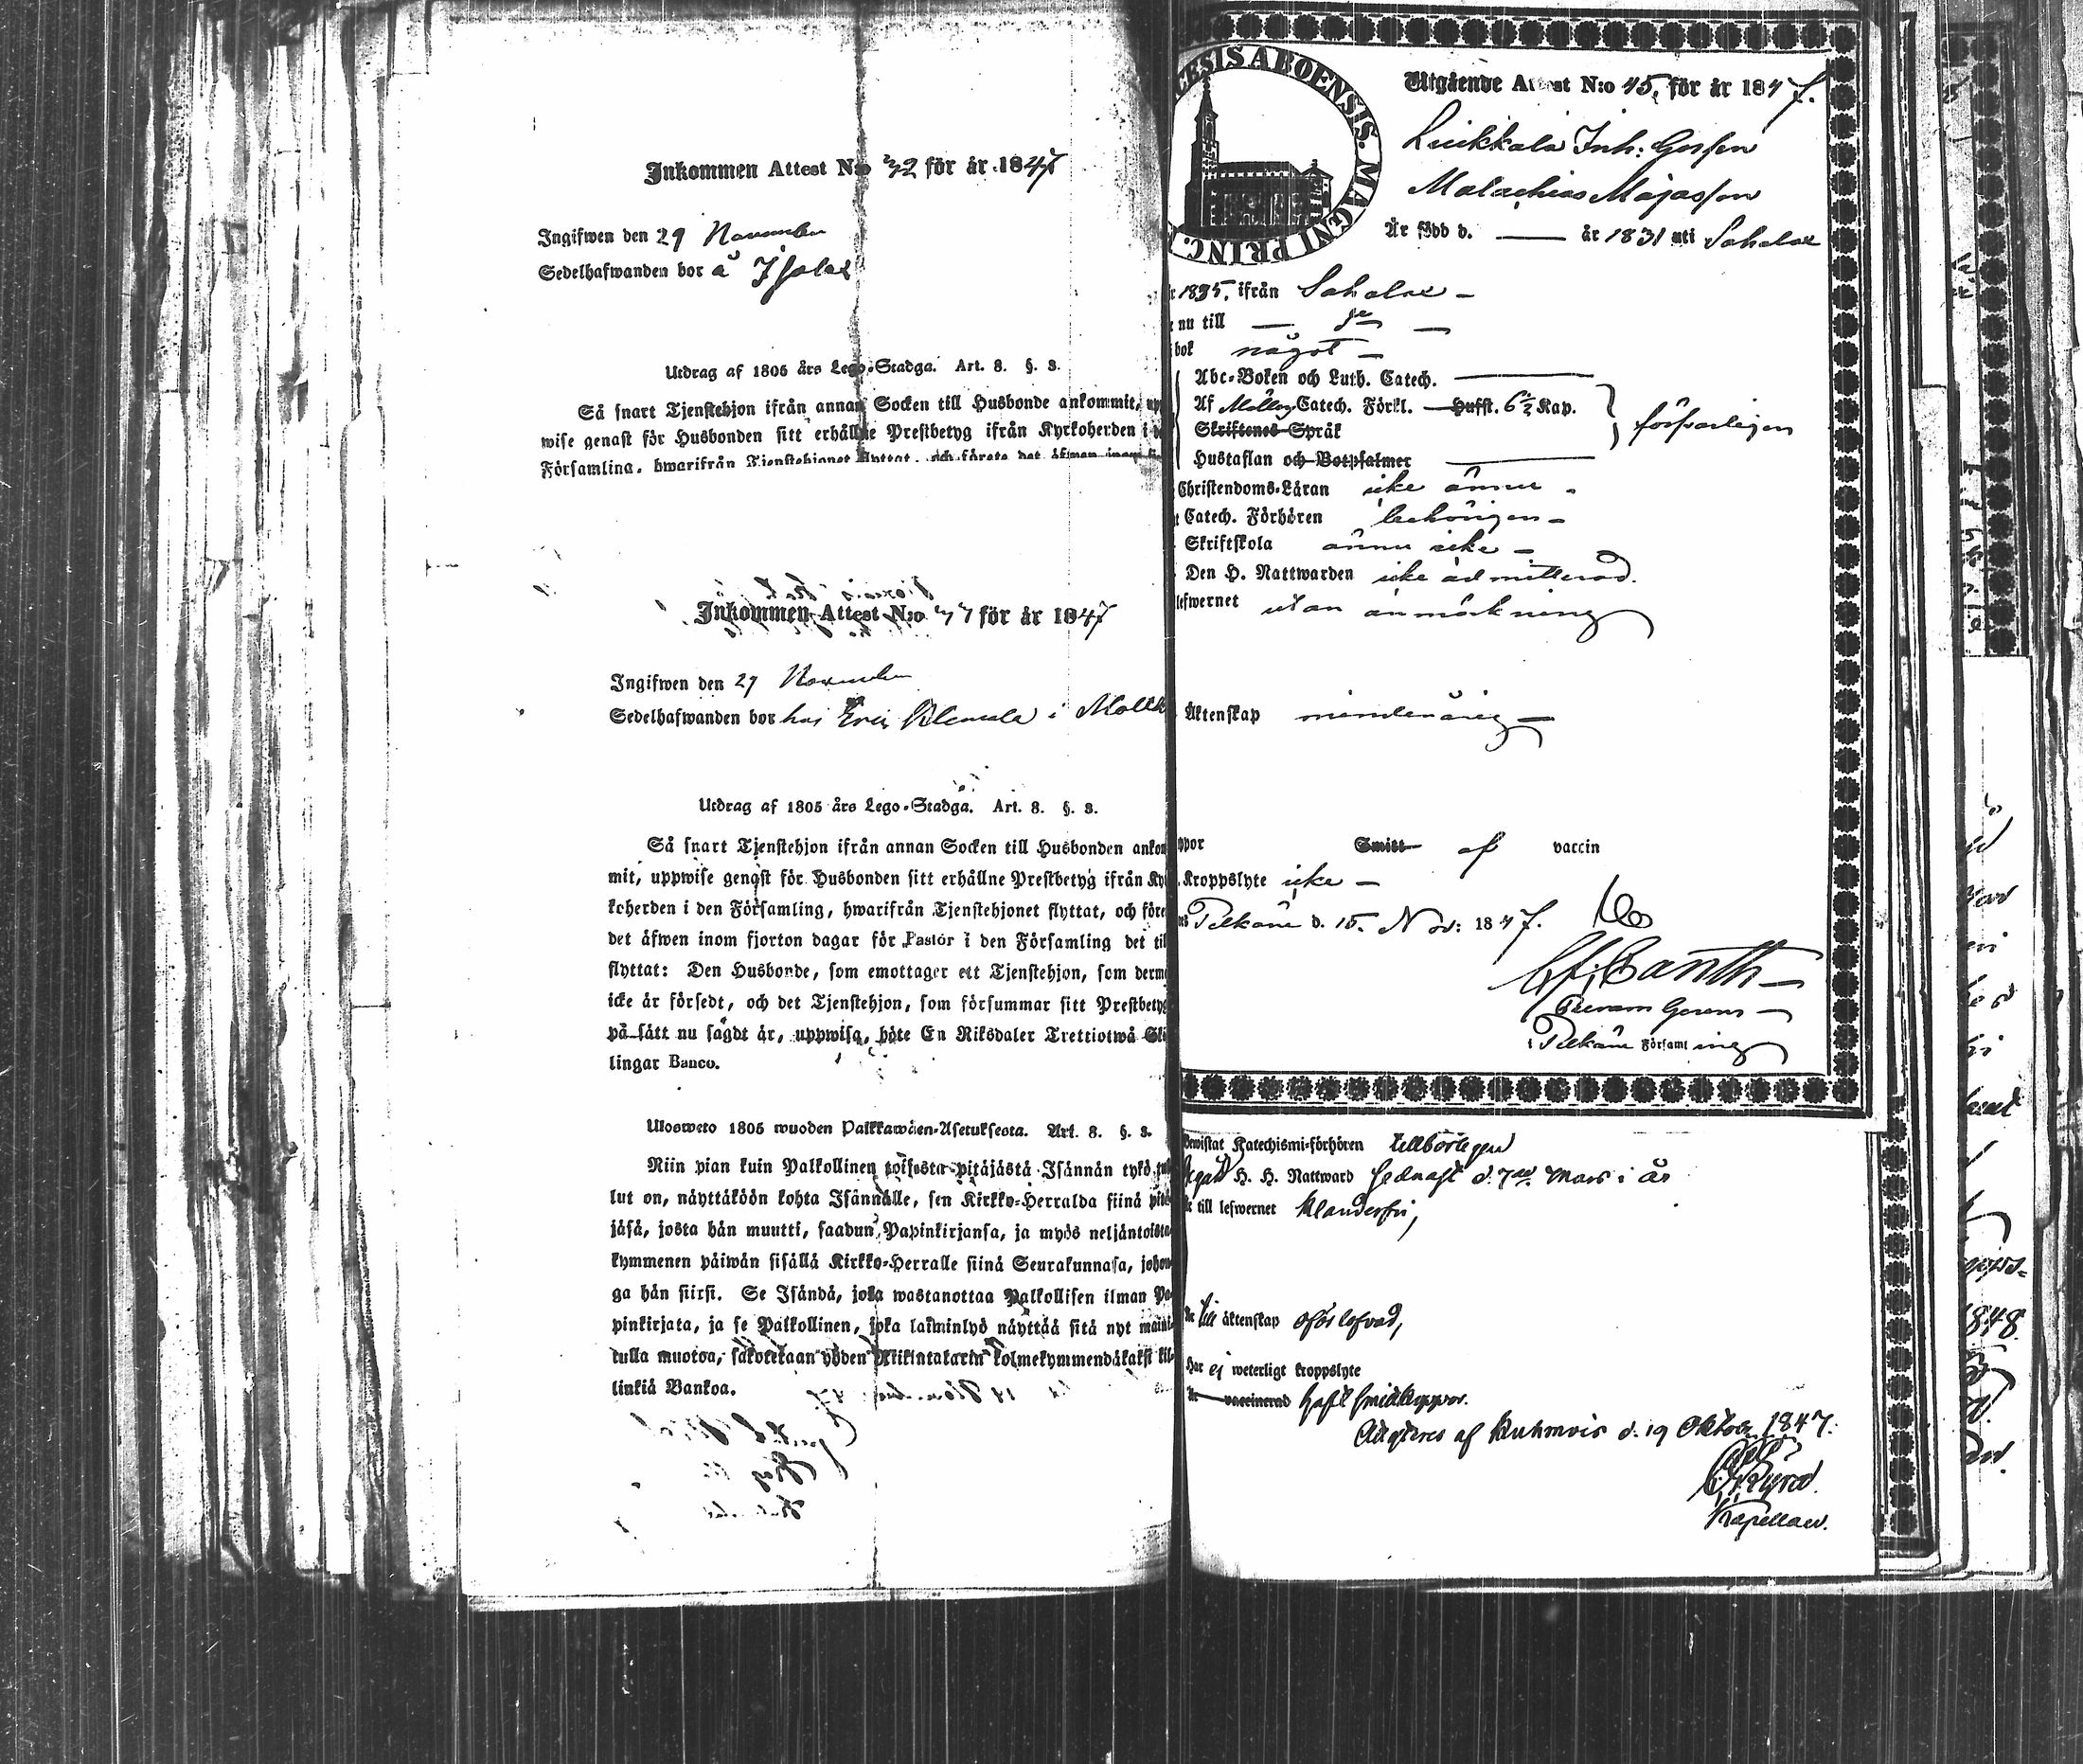 Inkommen Attest N:o 32 för år 1847
Ingifwen den 29 November
Sedelhafwanden bor å Isalax
Utdrag af 1805 års Lego-Stadga. Art. 8. §. 3.
Så snart Tjenstehjon ifrån annan Socken till Husbonde ankommit, upp
wise genast för Husbonden sitt erhållne Prestbetyg ifrån Kyrkoherden i d
Församling, hwarifrån Tjenstehjonet flyttat, och förete det äfwen inom
Inkommen Attest N:o för år 1847
Ingifwen den 29 November
Sedelhafwanden bor hos Eric Klemola i
Utdrag af 1805 års Lego-Stadga. Art. 8. §. 3.
Så snart Tjenstehjon ifrån annan Socken till Husbonden ankom
mit, uppwise genast för Husbonden sitt erhållne Prestbetyg ifrån Kyr
koherden i den Församling, hwarifrån Tjenstehjonet flyttat, och före
det äfwen inom fjorton dagar för Pastor i den Församling det til
flyttat: Den Husbonde, som emottager ett Tjenstehjon, som derme
icke är försedt, och det Tjenstehjon, som försummar sitt Prestbetyg
på sätt nu sagdt är, uppwisa, böte En Riksdaler Trettiotwå Ski
lingar Banco.
Ulosweto 1805 wuoden Palkkawäen-Asetuksesta. Art. 8. §. 3.
Niin pian kuin Palkollinen toisesta pitäjästä Isännän tykö tul
lut on, näyttäköön kohta Isännälle, sen Kirkko-Herralda siinä pitä
jäsä, josta hän muutti, saadun Papinkirjansa, ja myös neljäntoista
kymmenen päiwän sisällä Kirkko-Herralle siinä Seurakunnasa, johon
ga hän siirsi. Se Isändä, joka wastanottaa Palkollisen ilman Pa
pinkirjata, ja se Palkollinen, joka laiminlyö näyttää sitä nyt maini
tulla muotoa, sakotetaan yhden Riikintalarin kolmekymmendäkaksi kil-
linkiä Bankoa.
CESIS ABOENSIS. MAGNI PRINC.
Utgående Attest N:o 45, för år 1847.
Luikkala Inh: Gossen
Malachias Majasson
Är född d. — år 1831 uti Sahalax
1835, ifrån Sahalax –
nu till — dn —
bok något –
Abc-Boken och Luth. Catech. —
Af Möllers Catech. Förkl. — Hufst. 6½ Kap.
Skriftenes Språk
försvarligen
Hustaflan och Botpsalmer —
Christendoms-Läran icke ännu –
Catech. Förhören behörigen –
Skriftskola ännu icke –
Den H. Nattwarden icke admitterad.
lefwernet utan anmärkning
Äktenskap minderårig –
ppor Smitt af vaccin
Kroppslyte icke –
Pelkäne d. 15. Nov: 1847.
i Pelkäne Församling
bewistat Katechismi-förhören tillbörligen
Begått H. H. Nattward sednast d. 7de Mars i år
till lefwernet klanderfri,
till äktenskap oförlofvad,
Har ej weterligt kroppslyte
vaccinerad haft smittkoppor.
Attesteres af Kuhmois d. 19 Oktober 1847.
Kapellan.
1848